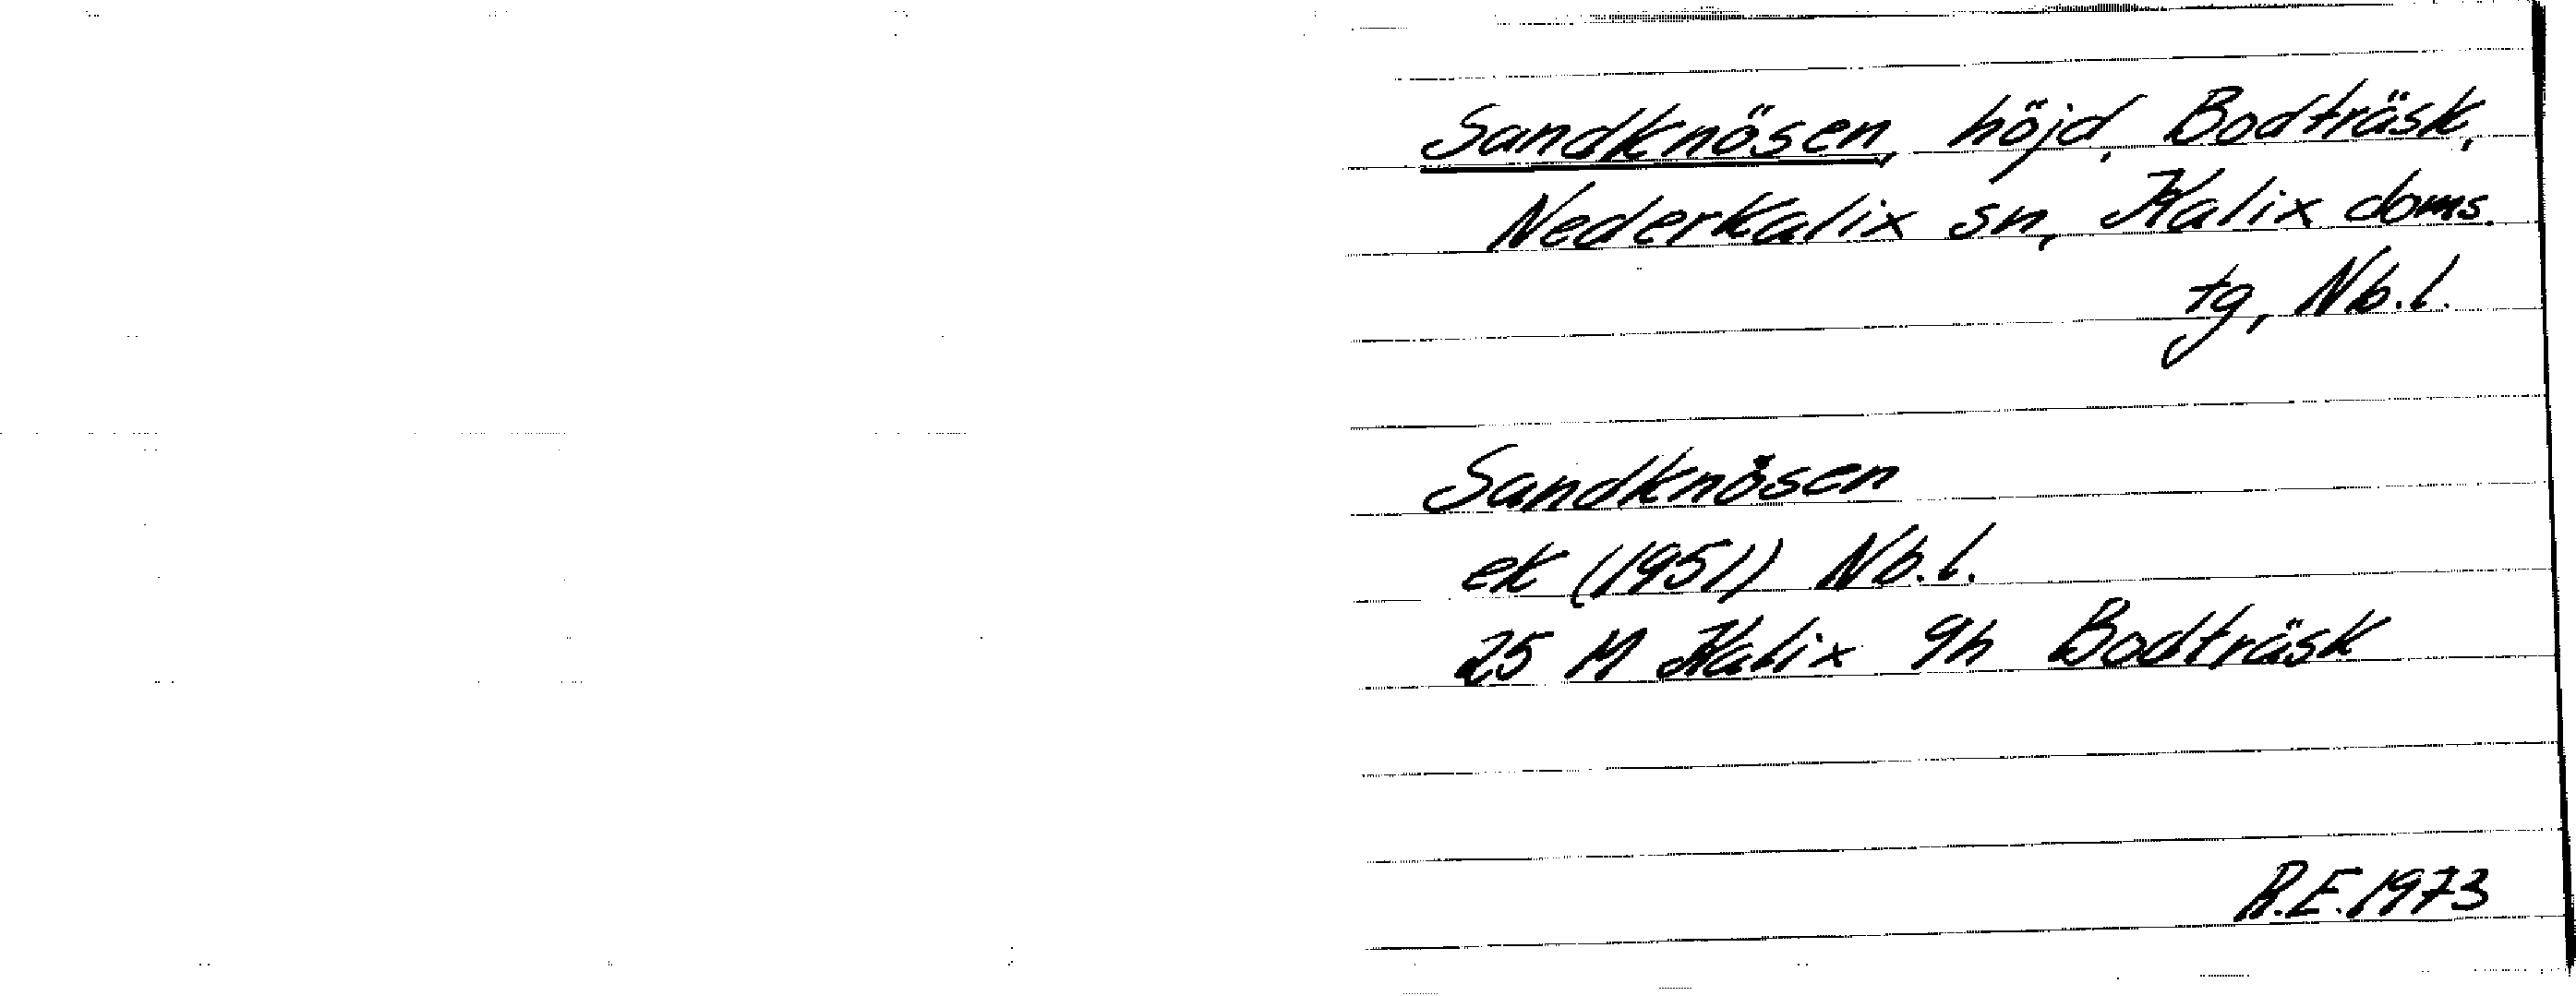 Sandknösen, höjd, Bodträsk,
Nederkalix sn, Kalix doms.
tg, Nb.l.
Sandknösen
ek (1951) Nb.l.
25 M Kalix 9h Bodträsk
R.E.1973